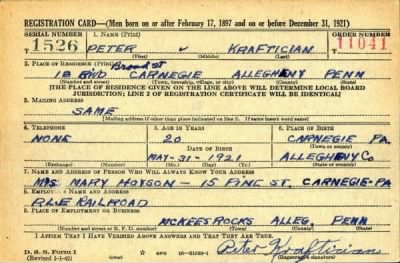 REGISTRATION CARD—(Men born on or after February 17, 1897 and on or before December 31, 1921)
SERIAL NUMBER 1. NAME (Print) ORDER NUMBER
T 1526 PETER KRAFTICIAN T11041
(First) (Middle) (Last)
2. PLACE OF RESIDENCE (Print) Broad St
18 BLVD CARNEGIE ALLEGHENY PENN
(Number and street) (Town, township, village, or city) (County) (State)
[THE PLACE OF RESIDENCE GIVEN ON THE LINE ABOVE WILL DETERMINE LOCAL BOARD
JURISDICTION; LINE 2 OF REGISTRATION CERTIFICATE WILL BE IDENTICAL]
3. MAILING ADDRESS
SAME
(Mailing address if other than place indicated on line 2. If same insert word same)
4. TELEPHONE 5. AGE IN YEARS 6. PLACE OF BIRTH
NONE 20 CARNEGIE PA.
DATE OF BIRTH (Town or county)
MAY-31-1921 ALLEGHENY Co
(Exchange) (Number) (Mo.) (Day) (Yr.) (State or country)
7. NAME AND ADDRESS OF PERSON WHO WILL ALWAYS KNOW YOUR ADDRESS
MRS. MARY 15 PINE ST, CARNEGIE-PA
8. EMPLOYER'S NAME AND ADDRESS
P.L.E RAILROAD
9. PLACE OF EMPLOYMENT OR BUSINESS
MCKEES ROCKS ALLEG, PENN
(Number and street or R. F. D. number) (Town) (County) (State)
I AFFIRM THAT I HAVE VERIFIED ABOVE ANSWERS AND THAT THEY ARE TRUE.
D. S. S. Form 1 GPO 16-21630-1 Peter Kraftician
(Revised 1-1-42) (over) (Registrant's signature)